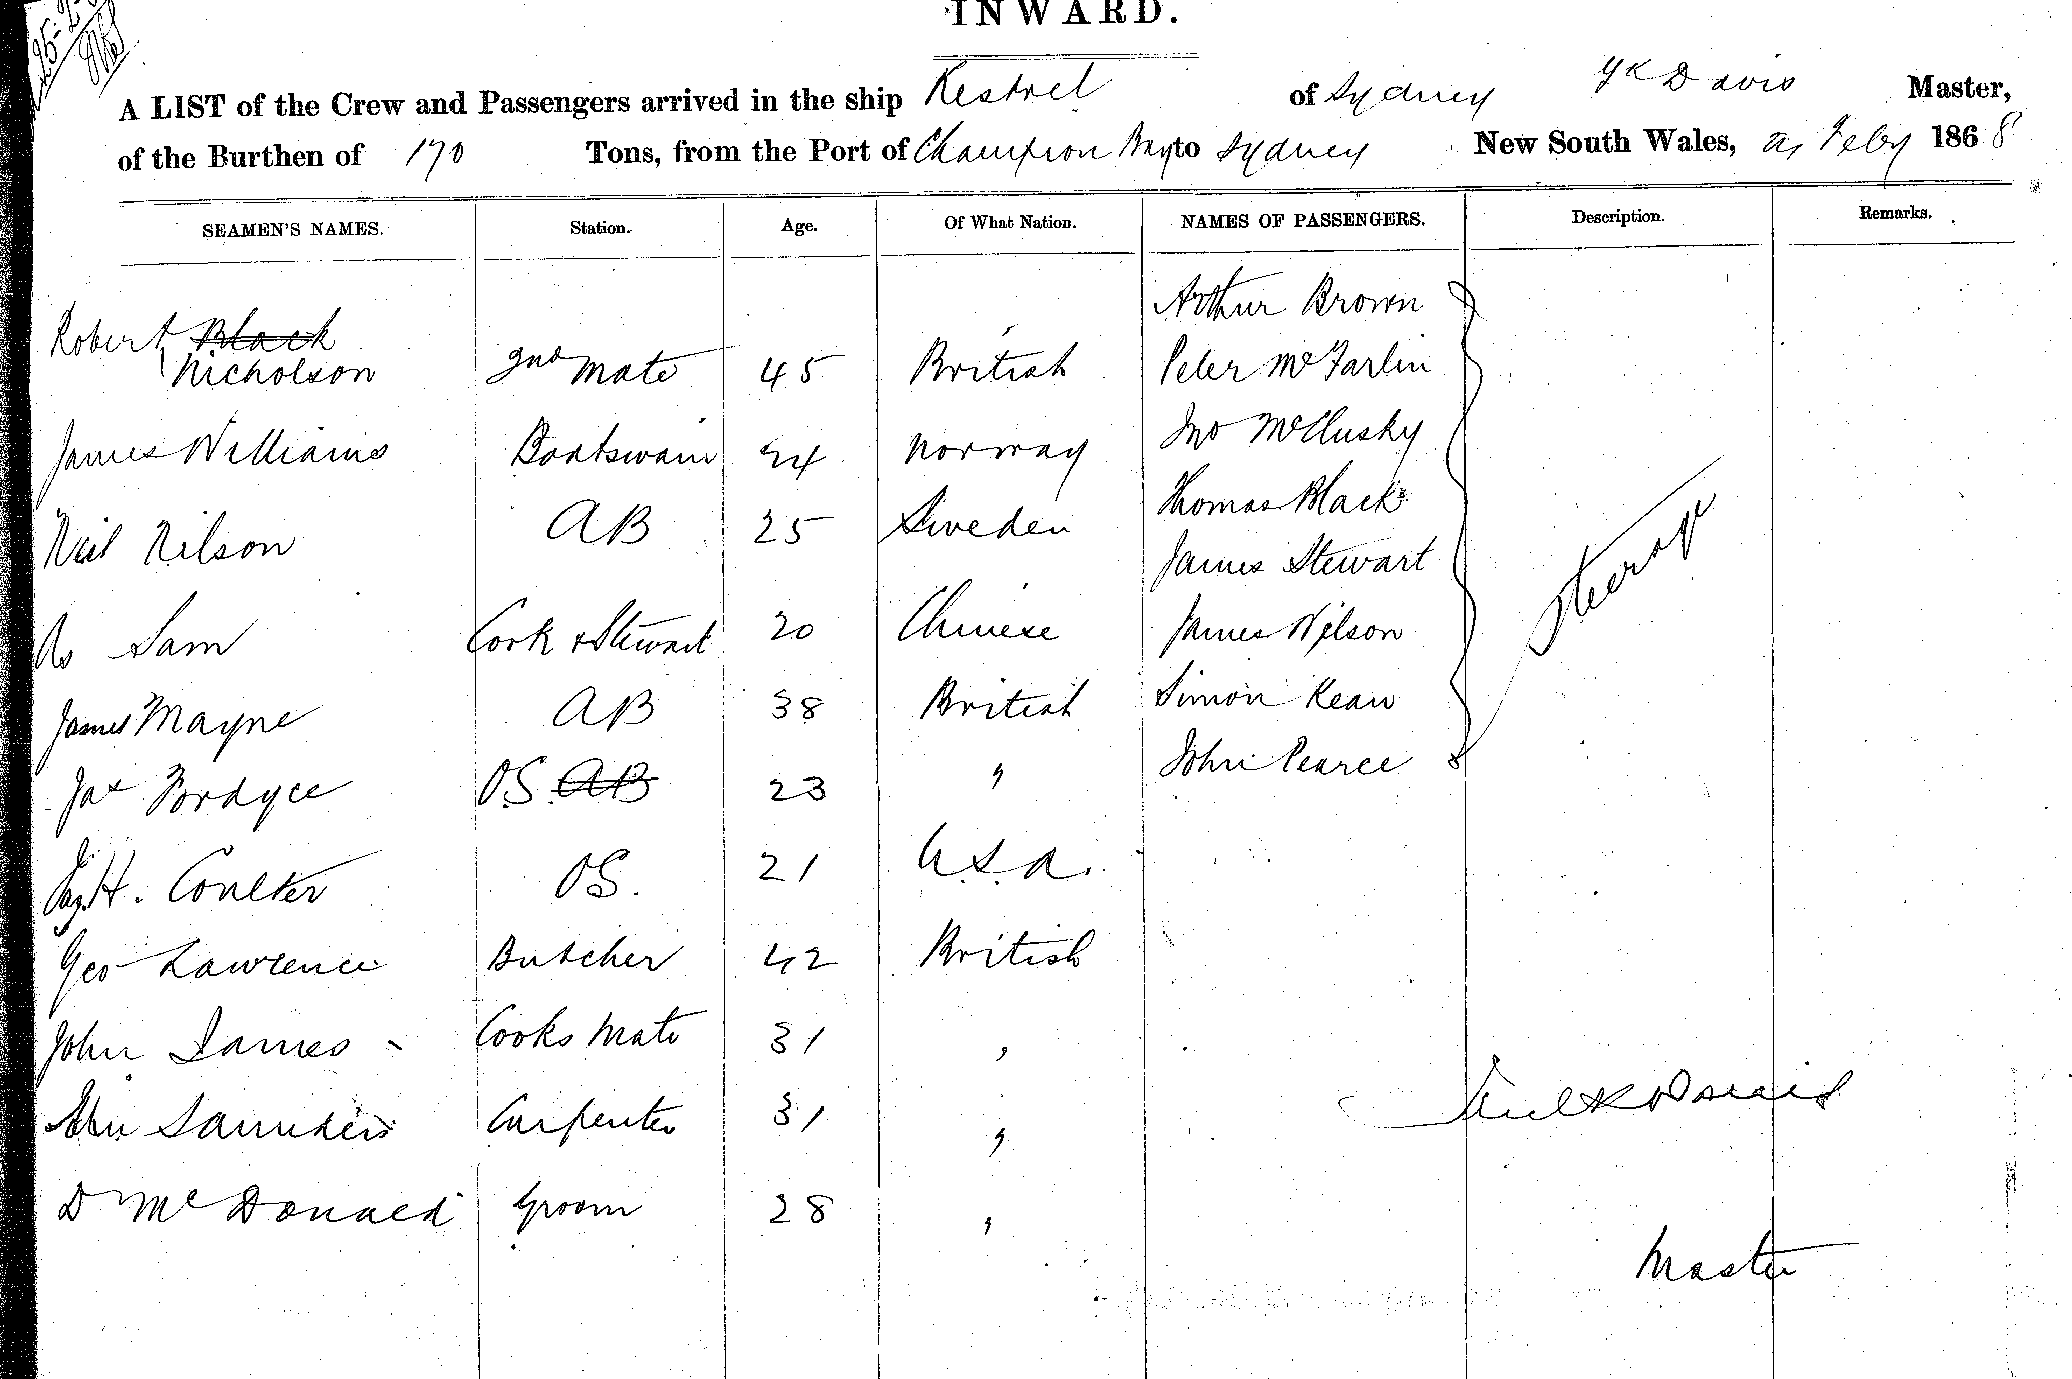 INWARD.
A LIST of the Crew and Passengers arrived in the ship Kestrel of Sydney Davis Master,
of the Burthen of 170 Tons, from the Port of Champion Bay to Sydney New South Wales, Feby 1868
SEAMEN'S NAMES. Station. Age. Of What Nation. NAMES OF PASSENGERS. Description. Remarks.
Arthur Brown
Robert Black
Nicholson 2nd Mate 45 British Peter McFarlin
James Williams Boatswain 24 Norway Jno McClusky
Thomas Black
Neil Nilson AB 25 Sweden
James Stewart
Steerage
Sam Cook & Stewart 20 Chinese James Wilson
James Mayne AB 38 British Simon Kean
John Pearce
Jas Fordyce OS AB 23 "
H. Coulter OS. 21 U.S.A.
Geo Lawrence Butcher 42 British
John James Cooks Mate 31 "
John Saunders Carpenter 31 "
D McDonald Groom 28 "
Master